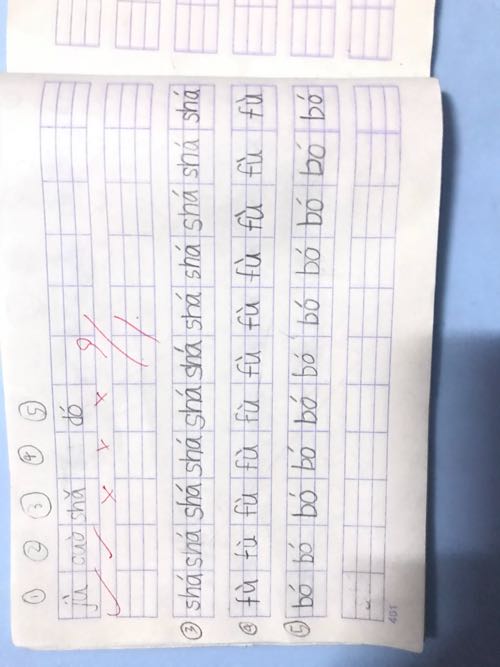 ① ② ③ ④ ⑤
jù cuò shǎ dó
③ shá shá shá shá shá shá shá shá shá shá shá
④ fù fù fù fù fù fù fù fù fù fù
⑤ bó bó bó bó bó bó bó bó bó bó
461